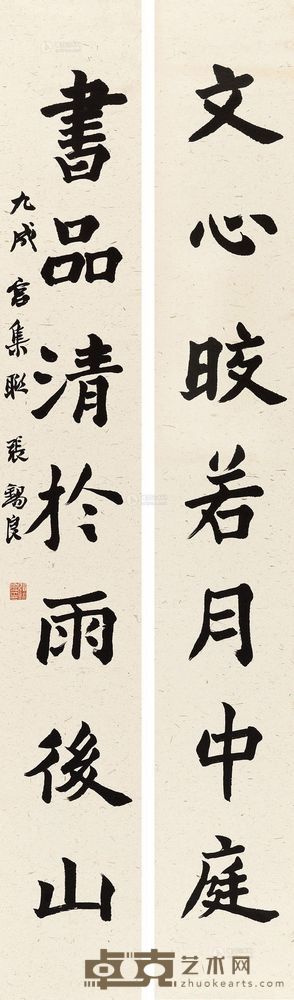 文心晈若月中庭
書品清於雨後山
九成宮集聯 張錫良
卓克艺术网
zhuokearts.com